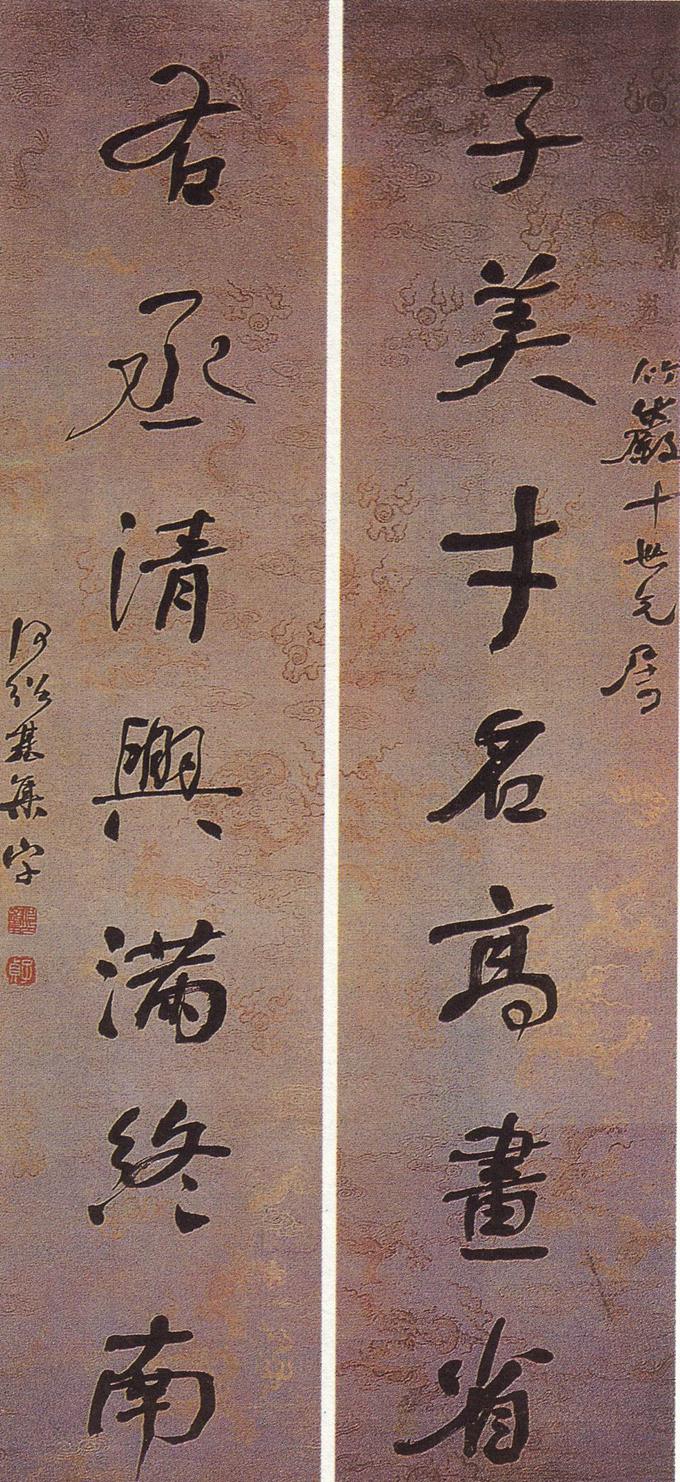 竹嚴十世兄屬
子美才名高畫省
右丞清興滿終南
何紹基集字